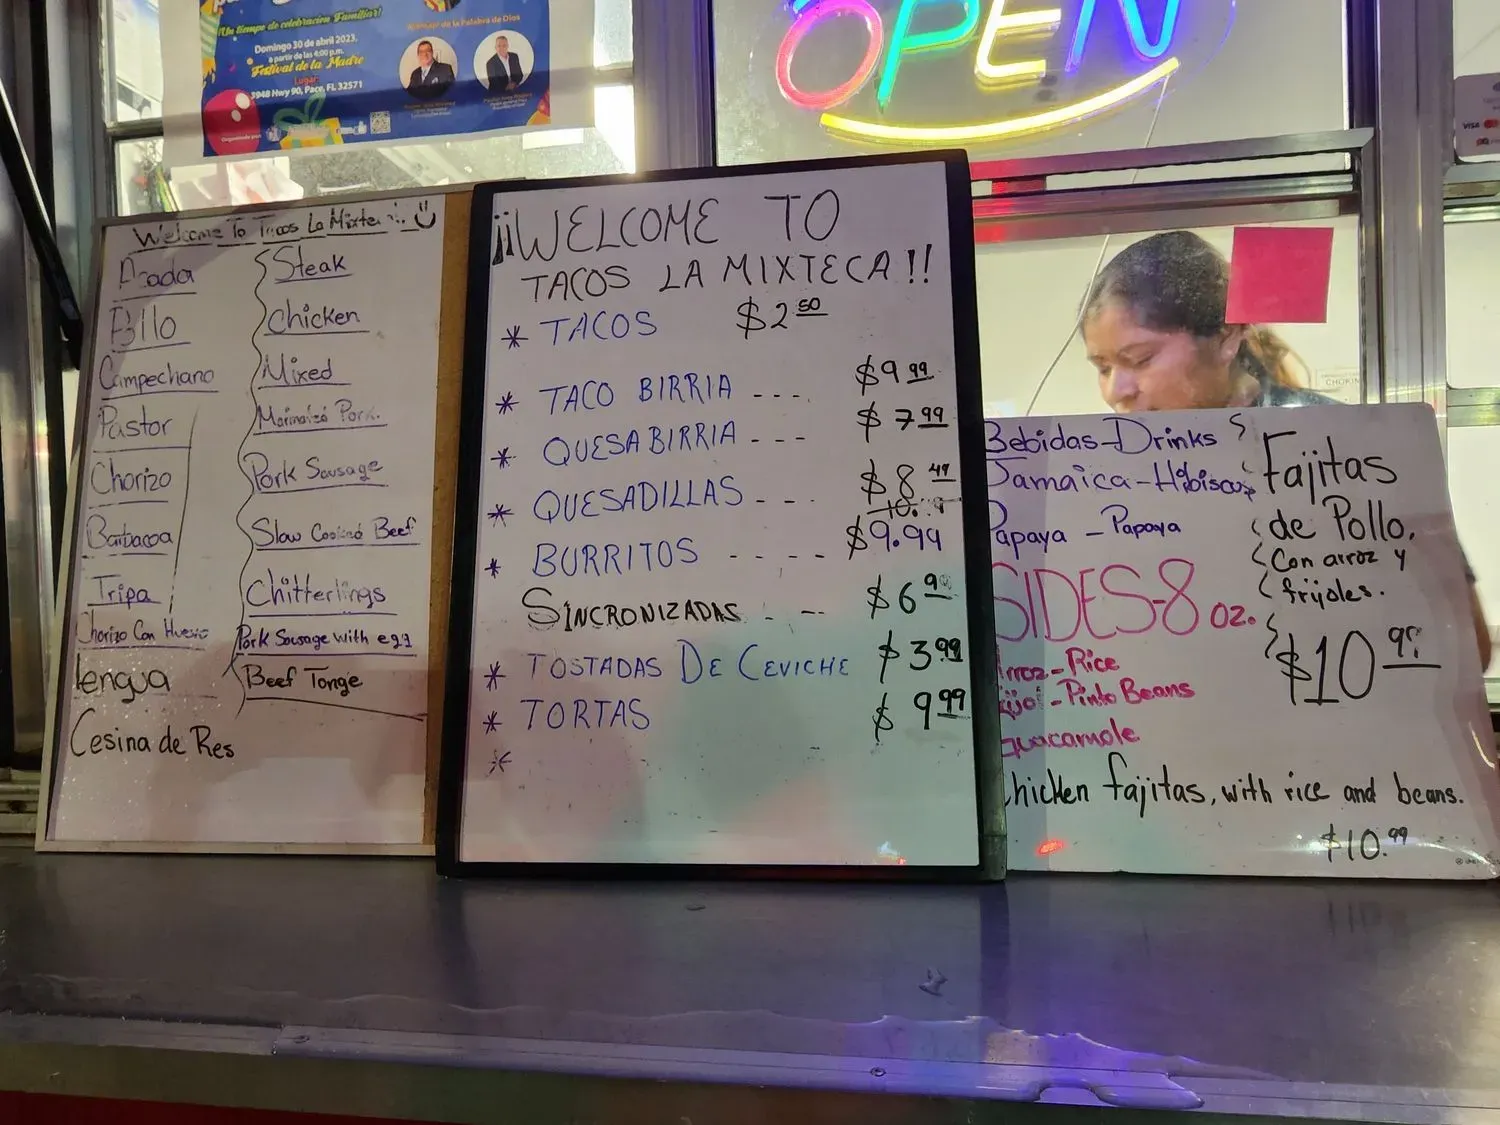 Un tiempo de celebración Familiar!
Domingo 30 de abril 2023.
a partir de las 4:00 p.m.
Festival de la Madre
Lugar:
3948 Hwy 90, Pace, FL 32571
de la Palabra de Dios
OPEN
VISA
Welcome To Tacos La Mixte
Asada Steak
Pollo Chicken
Campechano Mixed
Pastor Marinated Pork.
Chorizo Pork Sausage
Barbacoa Slow Cooked Beef
Tripa Chitterlings
Chorizo Con Huevo Pork Sausage with egg
Lengua Beef Tonge
Cesina de Res
¡¡WELCOME TO
TACOS LA MIXTECA!!
* TACOS $2 50
* TACO BIRRIA ---- $9 99
* QUESABIRRIA --- $7 99
* QUESADILLAS --- $8 49
* BURRITOS ---- $9.99
SINCRONIZADAS - -- $6 9
* TOSTADAS DE CEVICHE $3.99
* TORTAS $9 99
*
Bebidas-Drinks
Jamaica-Hibiscus
Papaya - Papaya
SIDES-8 oz.
Arroz-Rice
Frijol-Pinto Beans
Guacamole
Fajitas
de Pollo.
Con arroz y
frijoles.
$10 99
Chicken fajitas, with rice and beans.
$10.99